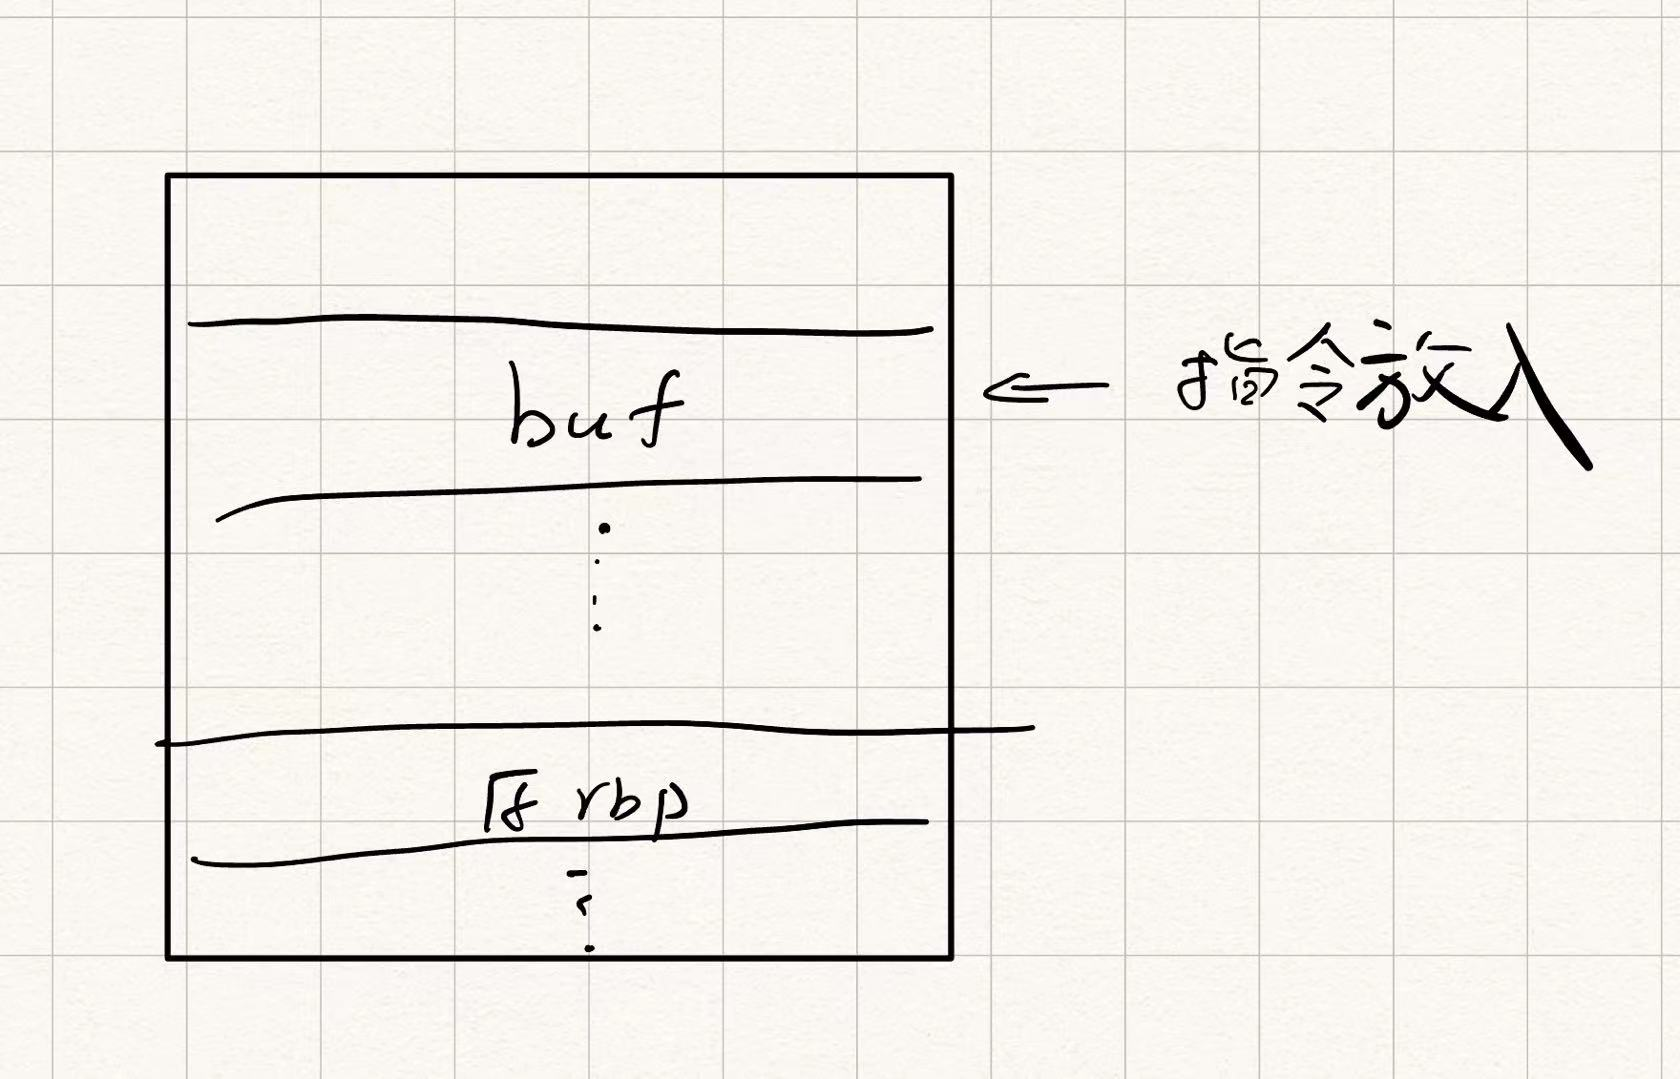 buf
指令放入
rbp